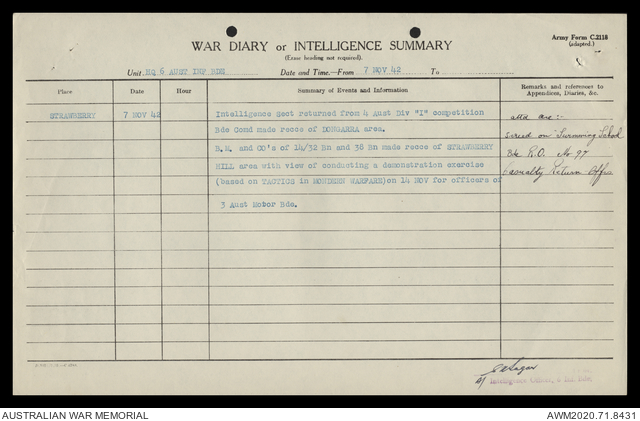 Army Form C.2118
(adapted.)
WAR DIARY or INTELLIGENCE SUMMARY
(Erase heading not required).
Unit HQ 6 AUST INF BDE Date and Time.—From 7 NOV 42 To
Place Date Hour Summary of Events and Information Remarks and references to Appendices, Diaries, &c.
STRAWBERRY 7 MOV 42 Intelligence Sect returned from 4 Aust Div "I" competition
Bde Comd made recce of DONGARRA area.
B.M. and CO's of 14/32 Bn and 38 Bn made recce of STRAWBERRY
HILL area with view of conducting a demonstration exercise
(based on TACTICS in MONDERN WARFARE)on 14 NOV for officers of
3 Aust Motor Bde.
attd are :-
on Swimming School
Bde R.O. No. 97
Casualty Return Offrs
Intelligence Officer, 6 Inf. Bde.
AUSTRALIAN WAR MEMORIAL
AWM2020.71.8431